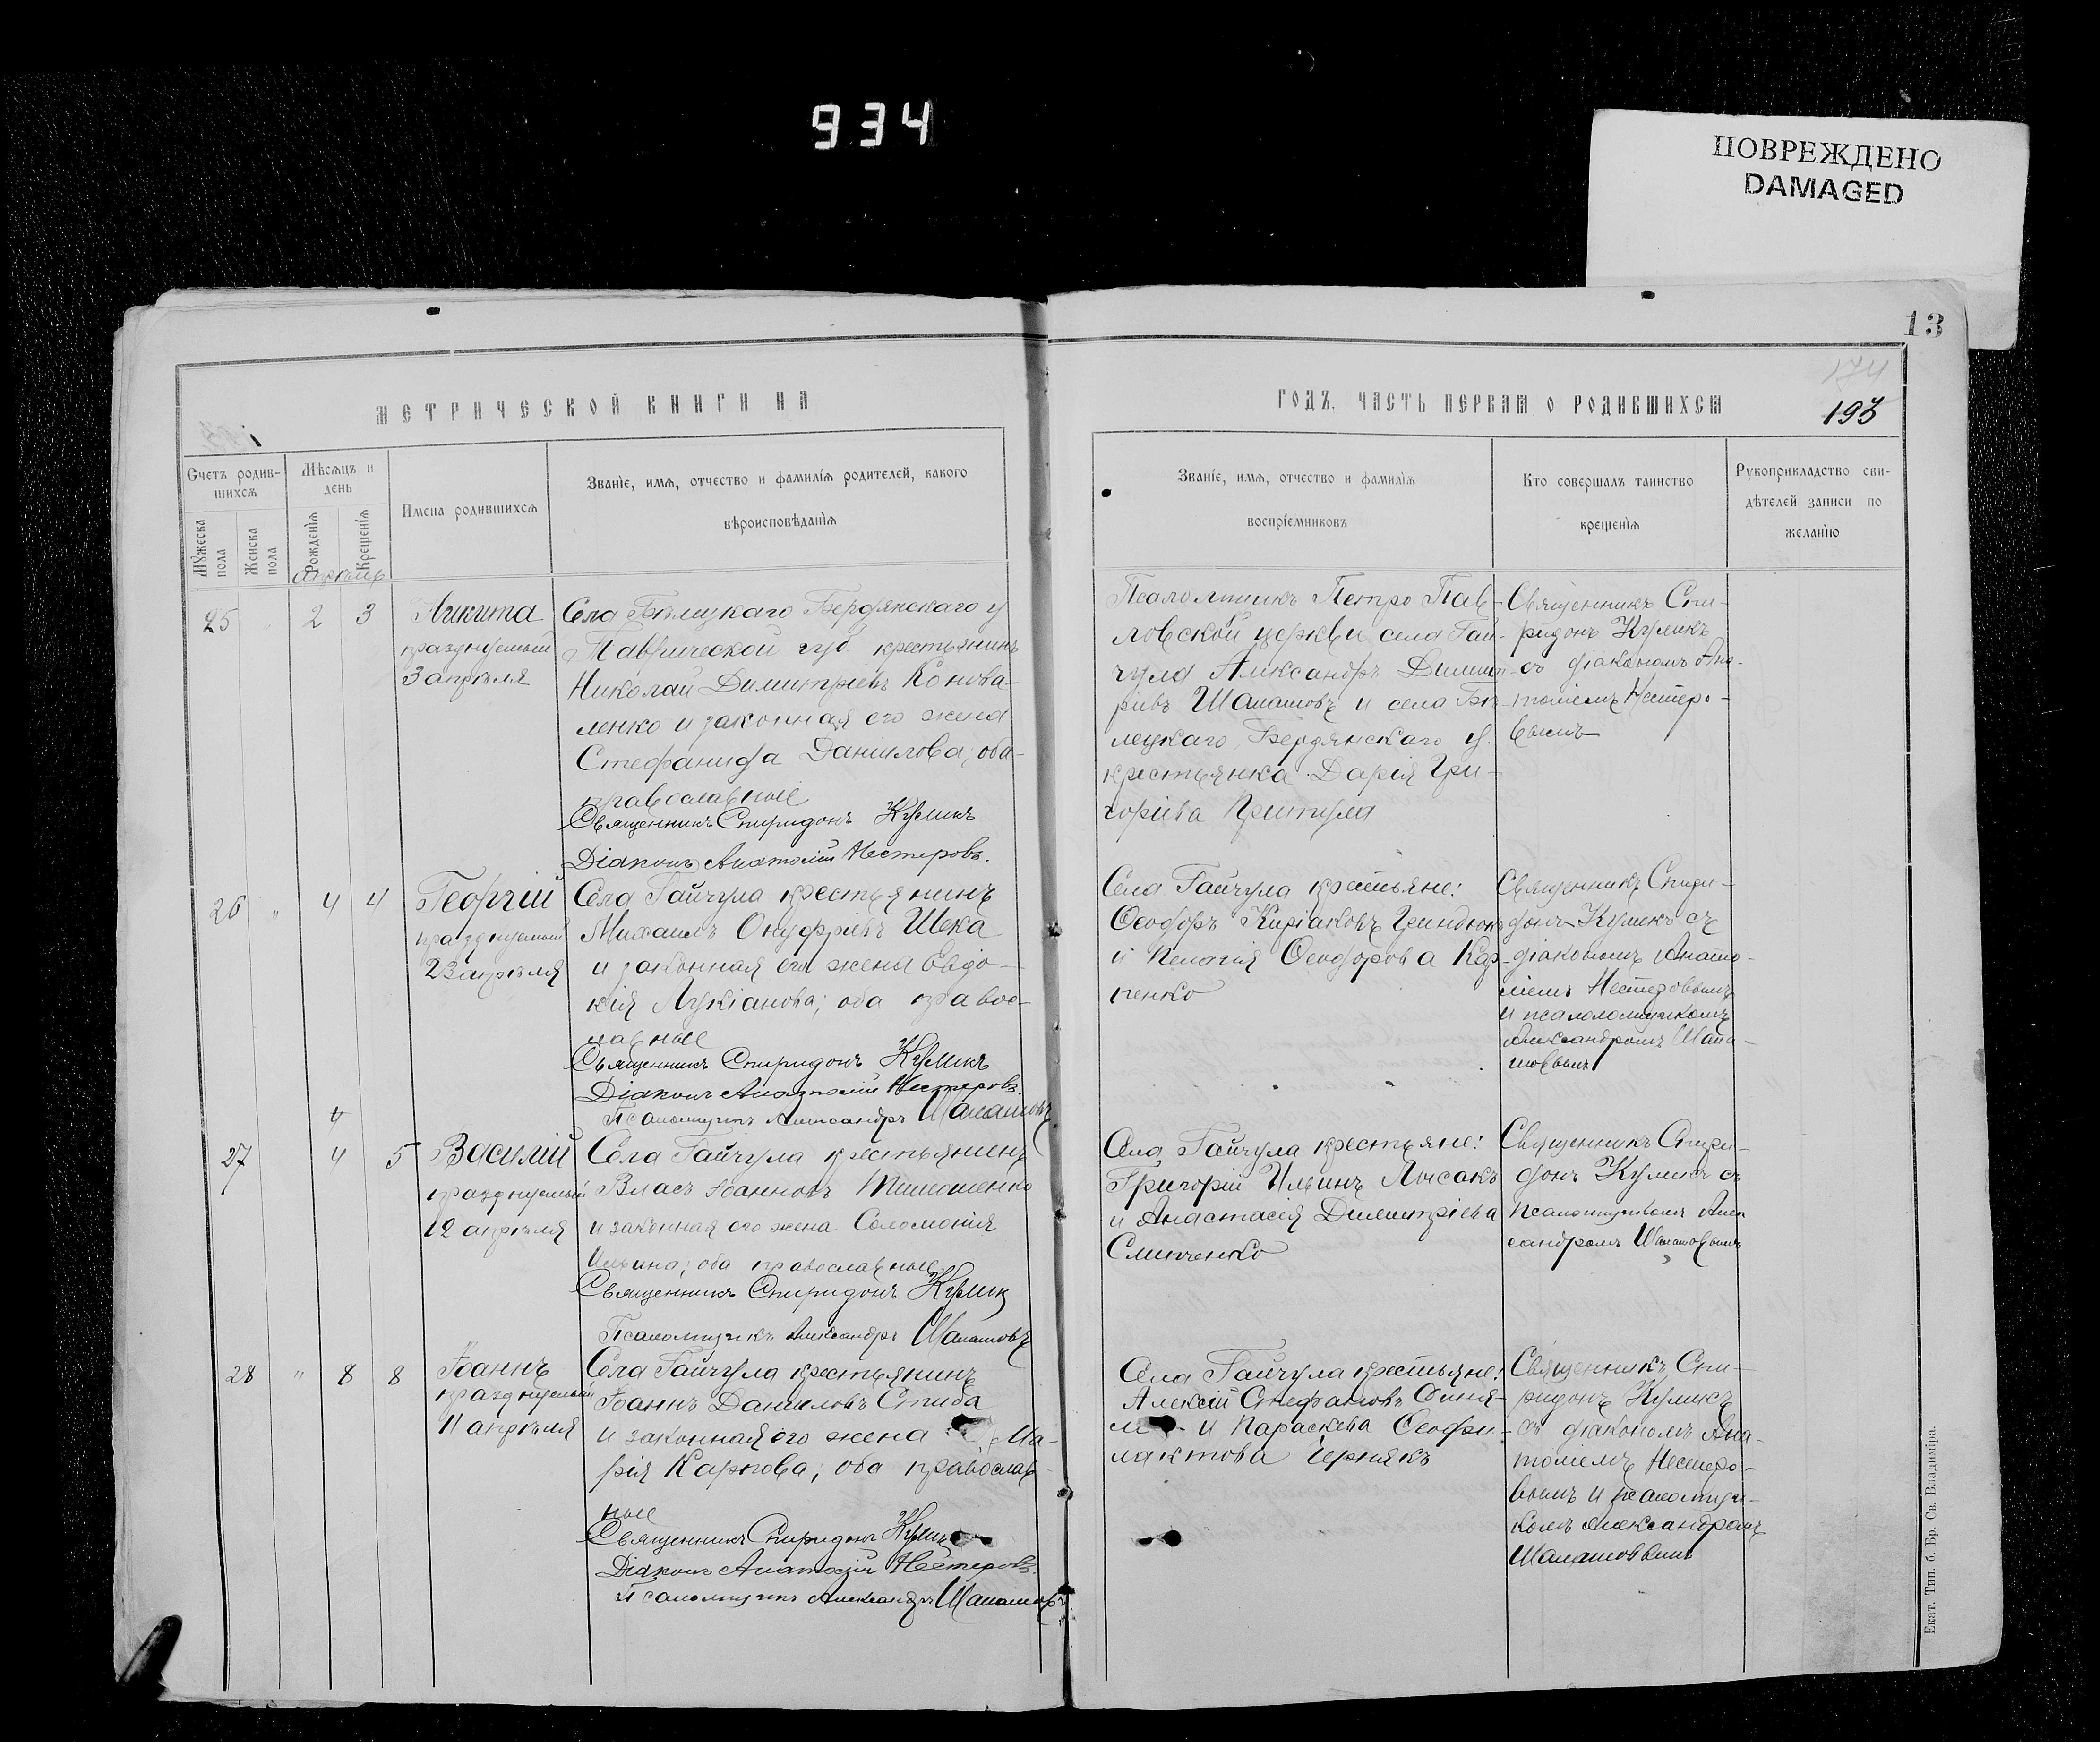 934
ПОВРЕЖДЕНО
DAMAGED
13
174
193
МЕТРИЧЕСКОЙ КНИГИ НА
ГОДЪ, ЧАСТЬ ПЕРВАЯ О РОДИВШИХСЯ
Счетъ родив-
шихся
Мѣсяцъ и
день
Имена родившихся
Званіе, имя, отчество и фамилія родителей, какого
вѣроисповѣданія
Мужеска
пола
Женска
пола
Рожденія
Крещенія
Званіе, имя, отчество и фамилія
воспріемниковъ
Кто совершалъ таинство
крещенія
Рукоприкладство сви-
дѣтелей записи по
желанію
Апрѣль
25 " 2 3
Никита
празднуемый
3 апрѣля
Села Бѣлецкаго Бердянскаго у
Таврической губ крестьянинъ
Николай Димитріевъ Конова-
ленко и законная его жена
Стефанида Даніилова; оба
православные
Священникъ Спиридонъ Куликъ
Діаконъ Анатолій Нестеровъ.
Псаломщикъ Петро Пав-
ловской церкви села Гай-
чула Александръ Димит-
ріевъ Шалашовъ и села Бѣ-
лецкаго Бердянскаго у.
крестьянка Дарія Гри-
горіева Притула
Священникъ Спи-
ридонъ Куликъ
съ діакономъ Ана-
толіемъ Нестеро-
вымъ
26 " 4 4
Георгій
празднуемый
23 апрѣля
Села Гайчула крестьянинъ
Михаилъ Онуфріевъ Шека
и законная его жена Евдо-
кія Лукіанова; оба правос-
лавные
Священникъ Спиридонъ Куликъ
Діаконъ Анатолій Нестеровъ.
Псаломщикъ Александръ Шалашовъ
Села Гайчула крестьяне:
Ѳеодоръ Киріаковъ Гриндюкъ
и Пелагія Ѳеодорова Кар-
пенко
Священникъ Спири-
донъ Куликъ съ
діакономъ Анато-
ліемъ Нестеровымъ
и псаломщикомъ
Александромъ Шала-
шовымъ
4
27 4 5
Василій
празднуемый
12 апрѣля
Села Гайчула крестьянинъ
Власъ Іоанновъ Тимошенко
и законная его жена Соломонія
Ильина; оба православные
Священникъ Спиридонъ Куликъ
Псаломщикъ Александръ Шалашовъ
Села Гайчула крестьяне:
Григорій Ильинъ Лысакъ
и Анастасія Димитріева
Слипченко
Священникъ Спири-
донъ Куликъ съ
псаломщикомъ Алек
сандромъ Шалашовымъ
28 " 8 8
Іоаннъ
празднуемый
11 апрѣля
Села Гайчула крестьянинъ
Іоаннъ Даниловъ Спиба
и законная его жена Ма-
рія Карпова; оба православ-
ные
Священникъ Спиридонъ Куликъ
Діаконъ Анатолій Нестеровъ.
Псаломщикъ Александръ Шалашовъ
Села Гайчула крестьяне:
Алексій Стефановъ
и Параскева Ѳеофи-
лактова Чернякъ
Священникъ Спи-
ридонъ Куликъ
съ діакономъ Ана-
толіемъ Нестеро-
вымъ и псаломщи-
комъ Александромъ
Шалашовымъ
Екат. Тип. б. Бр. Св. Владиміра.